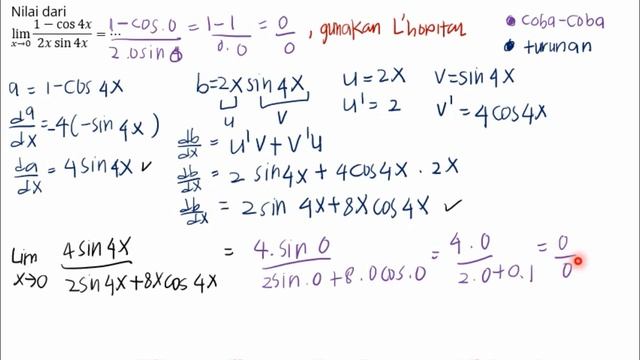 Nilai dari
lim x→0 (1 − cos 4x)/(2x sin 4x) = ... (1-cos.0)/(2.0sin 0) = (1-1)/(0.0) = 0/0 , gunakan L'hopital
• Coba-Coba
• turunan
a = 1-cos 4x
da/dx = -4(-sin 4x)
da/dx = 4sin 4x ✓
b = 2x sin 4x
u v
u = 2x v = sin 4x
u' = 2 v' = 4cos 4x
db/dx = u'v + v'u
db/dx = 2 sin 4x + 4cos 4x . 2x
db/dx = 2sin 4x + 8x cos 4x ✓
Lim x→0 (4 sin 4x)/(2sin 4x + 8x cos 4x) = (4. sin 0)/(2sin.0 + 8.0 cos.0) = (4.0)/(2.0+0.1) = 0/0